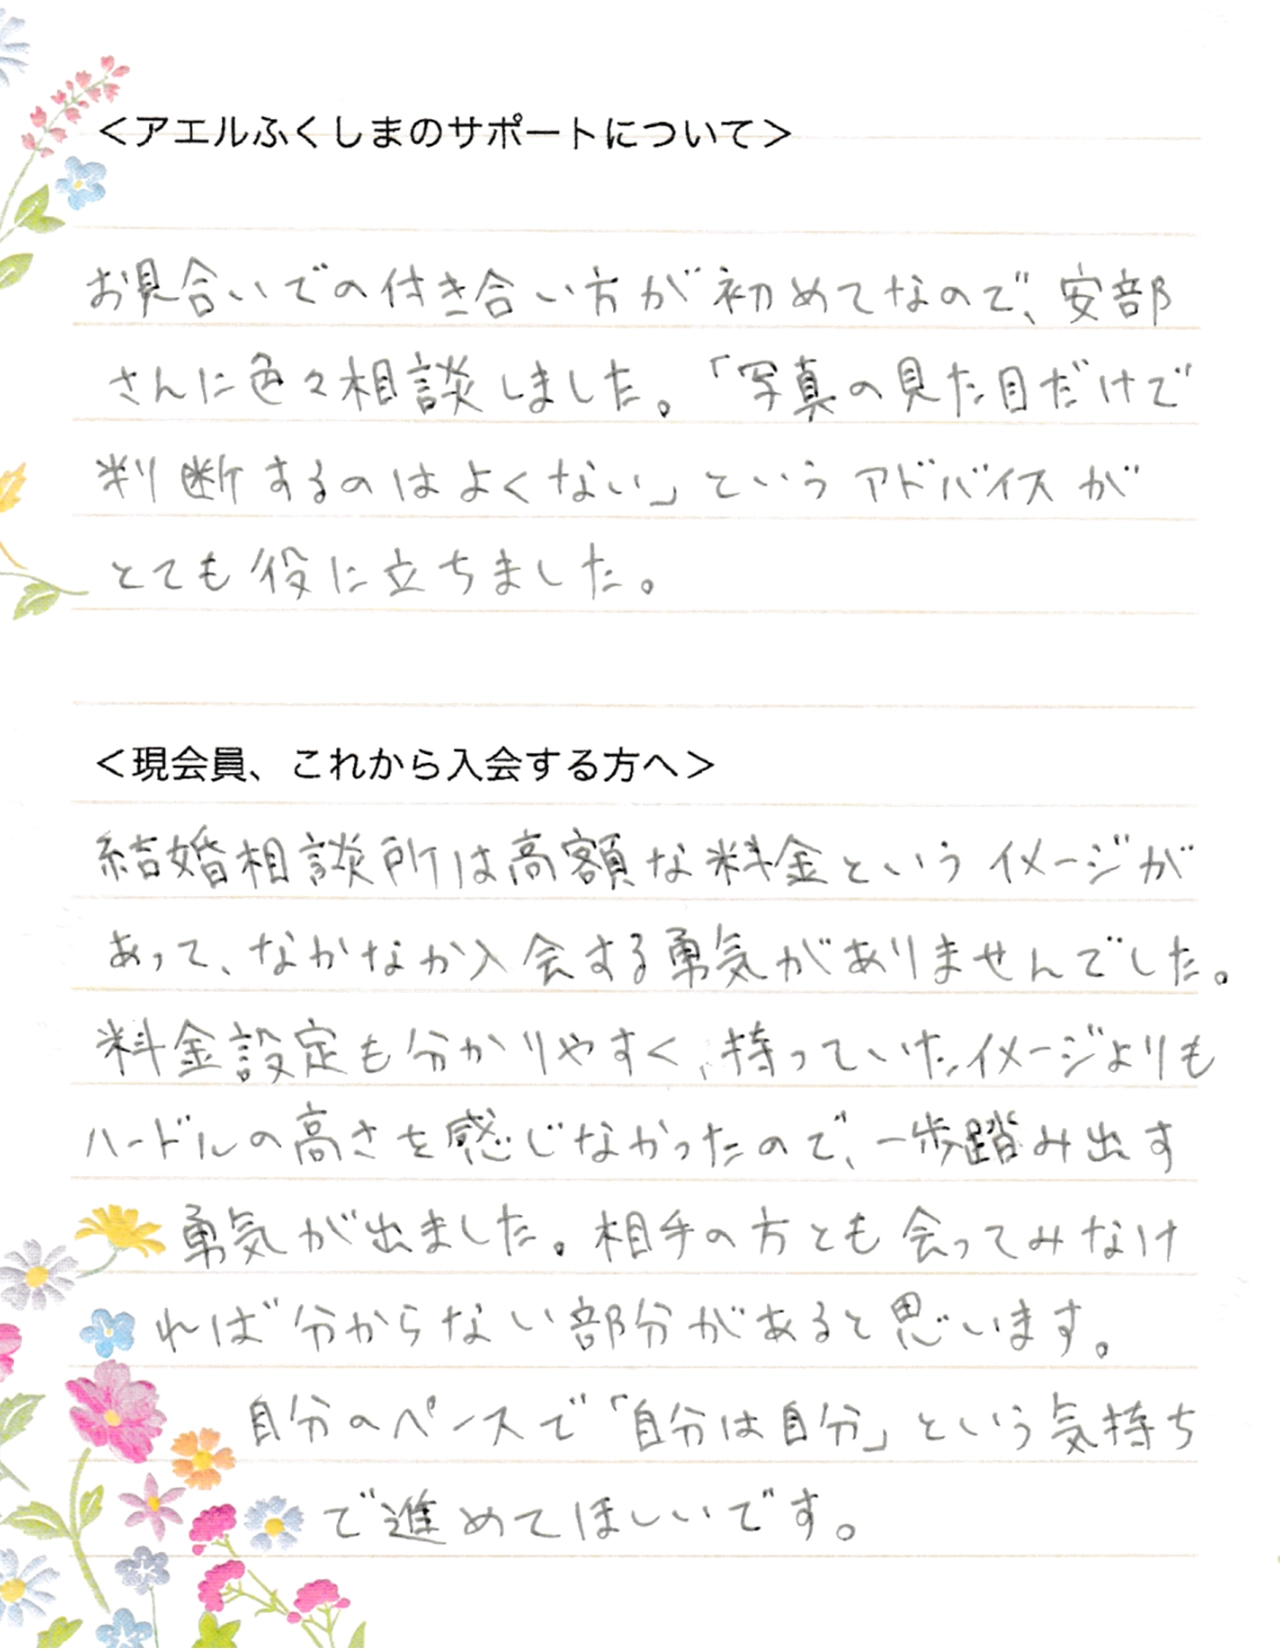 ＜アエルふくしまのサポートについて＞
お見合いでの付き合い方が初めてなので、安部
さんに色々相談しました。「写真の見た目だけで
判断するのはよくない」というアドバイスが
とても役に立ちました。
＜現会員、これから入会する方へ＞
結婚相談所は高額な料金というイメージが
あって、なかなか入会する勇気がありませんでした。
料金設定も分かりやすく、持っていたイメージよりも
ハードルの高さを感じなかったので、一歩踏み出す
勇気が出ました。相手の方とも会ってみなけ
れば分からない部分があると思います。
自分のペースで「自分は自分」という気持ち
で進めてほしいです。